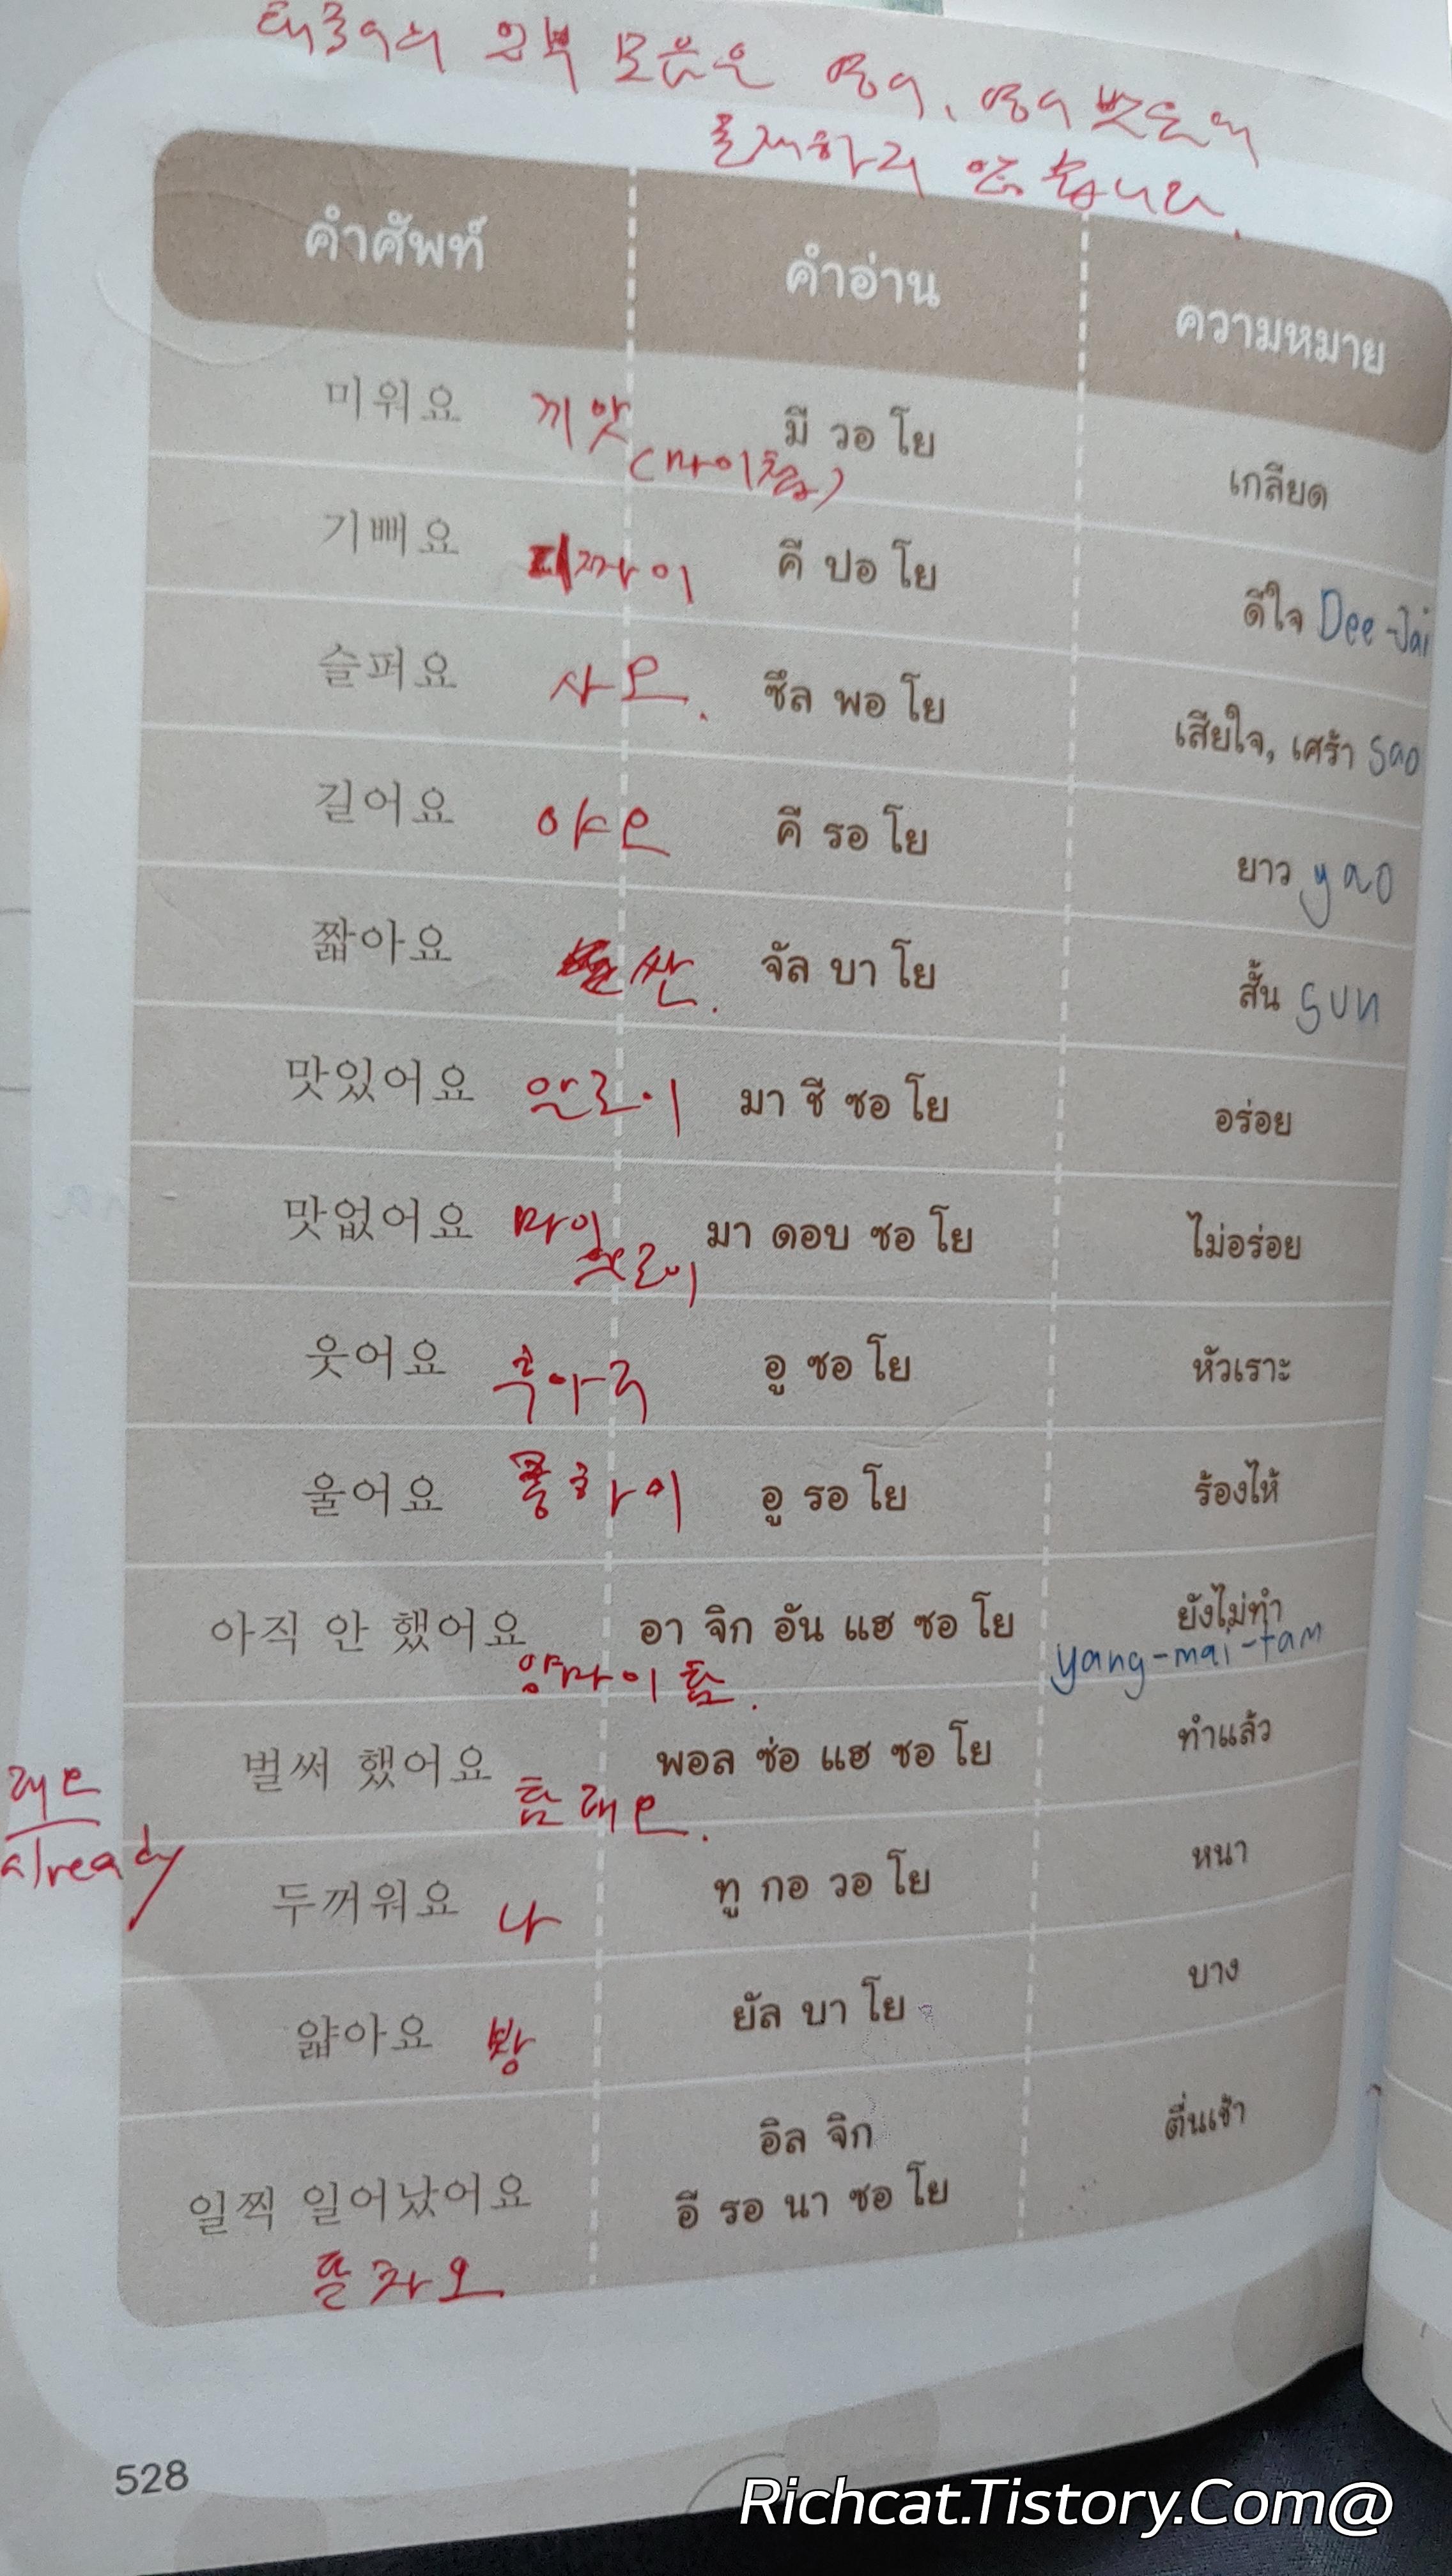 태국어의 일부 모음은 영어, 영어 발음에
존재하지 않습니다.
คำศัพท์ คำอ่าน ความหมาย
미워요 มี วอ โย เกลียด
(마이첩)
기뻐요 คี ปอ โย ดีใจ Dee-Jai
슬퍼요 사오. ซึล พอ โย เสียใจ, เศร้า Sao
길어요 야오 คี รอ โย ยาว yao
짧아요 싼. จัล บา โย สั้น sun
맛있어요 알로이 มา ชี ซอ โย อร่อย
맛없어요 마이 มา ดอบ ซอ โย ไม่อร่อย
웃어요 후아 อู ซอ โย หัวเราะ
울어요 하이 อู รอ โย ร้องไห้
아직 안 했어요 อา จิก อัน แฮ ซอ โย ยังไม่ทำ
양마이탐. yang-mai-tam
벌써 했어요 พอล ซ่อ แฮ ซอ โย ทำแล้ว
래오 탐래오.
already
두꺼워요 나 ทู กอ วอ โย หนา
얇아요 방 ยัล บา โย บาง
อิล จิก ตื่นเช้า
일찍 일어났어요 อี รอ นา ซอ โย
528
Richcat.Tistory.Com@